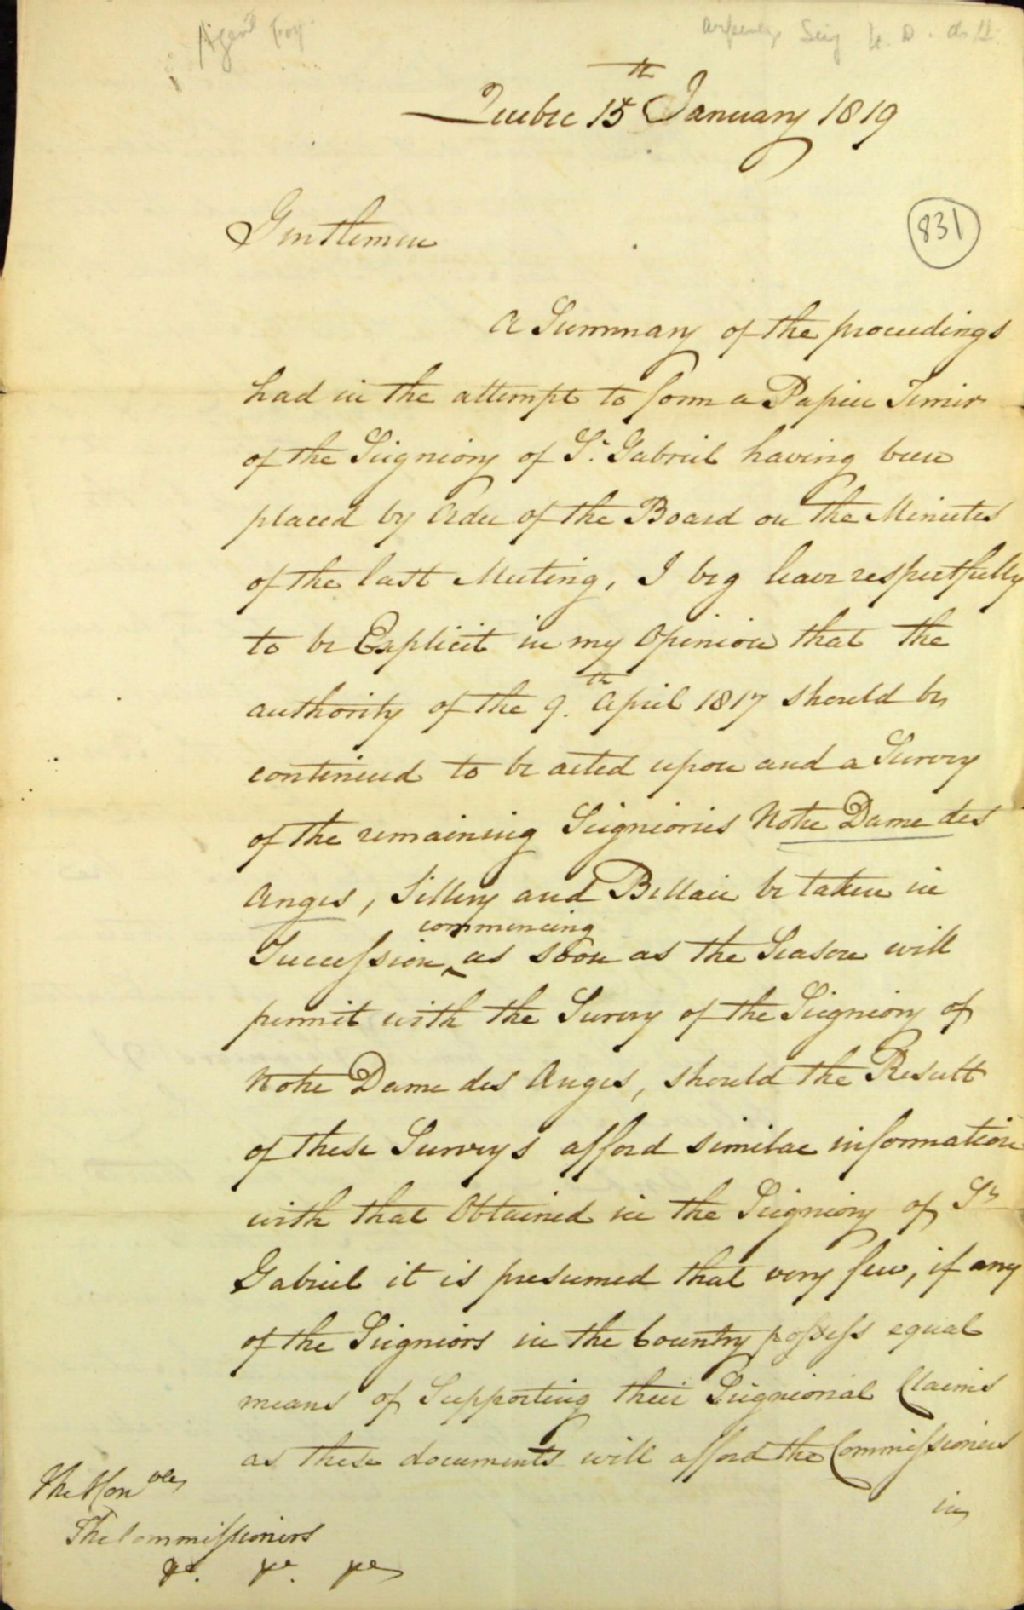 Quebec 15th January 1819
831
Gentlemen
A Summary of the proceedings
had in the attempt to form a Papier Terrier
of the Seigniory of St. Gabriel having been
placed by Order of the Board on the Minutes
of the last Meeting, I beg leave respectfully
to be Explicit in my Opinion that the
authority of the 9.th April 1817 should be
continued to be acted upon and a Survey
of the remaining Seigniories Notre Dame des
Anges, Sillery and Bellair be taken in
commencing
Succession ^ as soon as the Season will
permit with the Survey of the Seigniory of
Notre Dame des Anges, should the Result
of these Surveys afford similar information
with that Obtained in the Seigniory of St
Gabriel it is presumed that very few, if any
of the Seigniors in the Country possess equal
means of Supporting their Seignioral Claims
as these documents will afford the Commissioners
in
The Honble
The Commissioners
&c. &c. &c